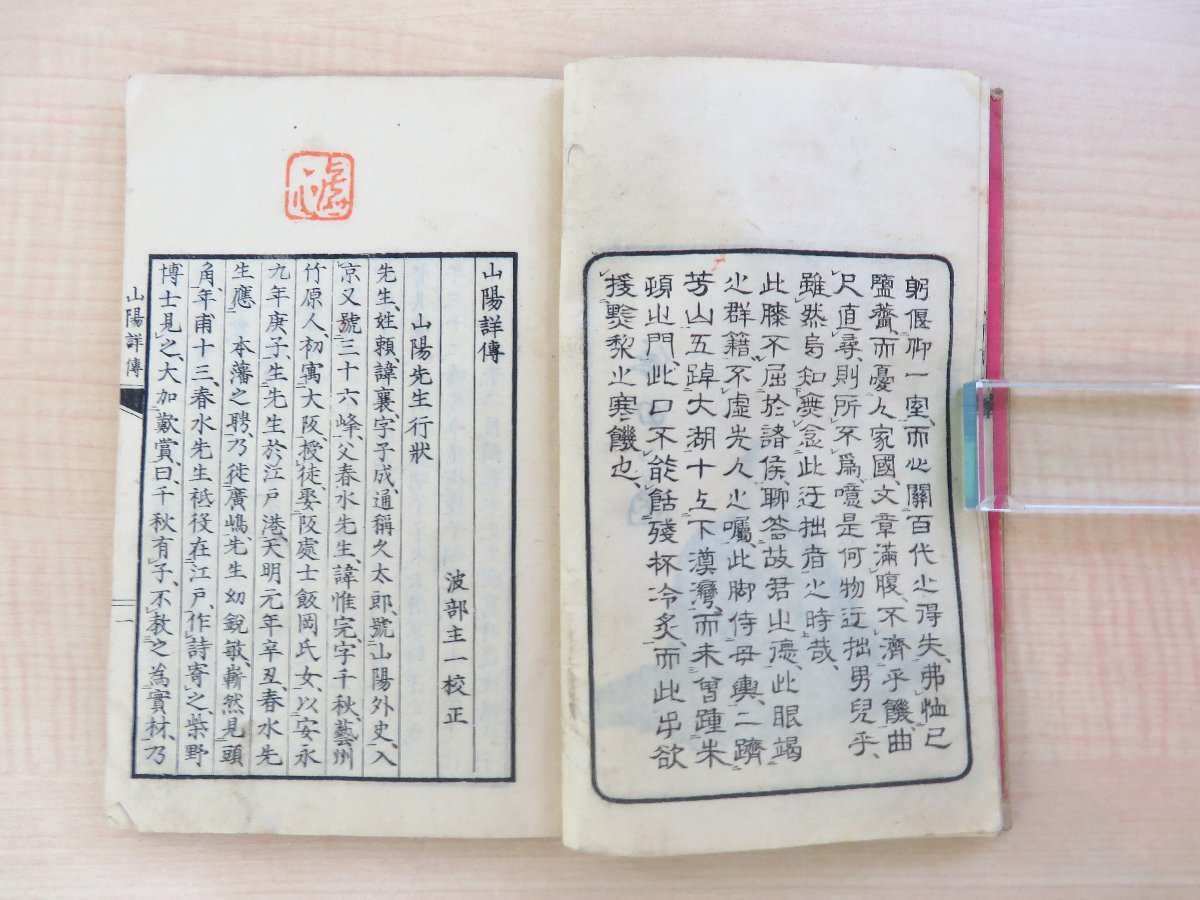 躬偃仰一室、而心關百代之得失、弗恤己
鹽虀、而憂人家國、文章滿腹、不濟乎饑、曲
尺直尋、則所不爲、噫是何物迂拙男兒乎、
雖然烏知無念此迂拙者之時哉、
此膝不屈於諸侯、聊答故君之德、此眼竭
之群籍、不虛先人之囑、此脚侍母輿、二躋
芳山五踔大湖十上下澱灣、而未曾踵朱
頓之門、此口不能餂殘杯冷炙而此手欲
援黎之寒饑也、
山陽詳傳
山陽先生行狀
波部主一校正
先生、姓賴、諱襄、字子成、通稱久太郎、號山陽外史、入
京又號三十六峰、父春水先生、諱惟完、字千秋、藝州
竹原人、初寓大阪、授徒、娶阪處士飯岡氏女、以安永
九年庚子、生先生於江戶港、天明元年辛丑、春水先
生應本藩之聘、乃徙廣嶋、先生幼銳敏、嶄然見頭
角、年甫十三、春水先生祗役在江戶、作詩寄之、柴野
博士見之、大加歎賞、曰、千秋有子、不教之爲實材、乃
山陽詳傳
一